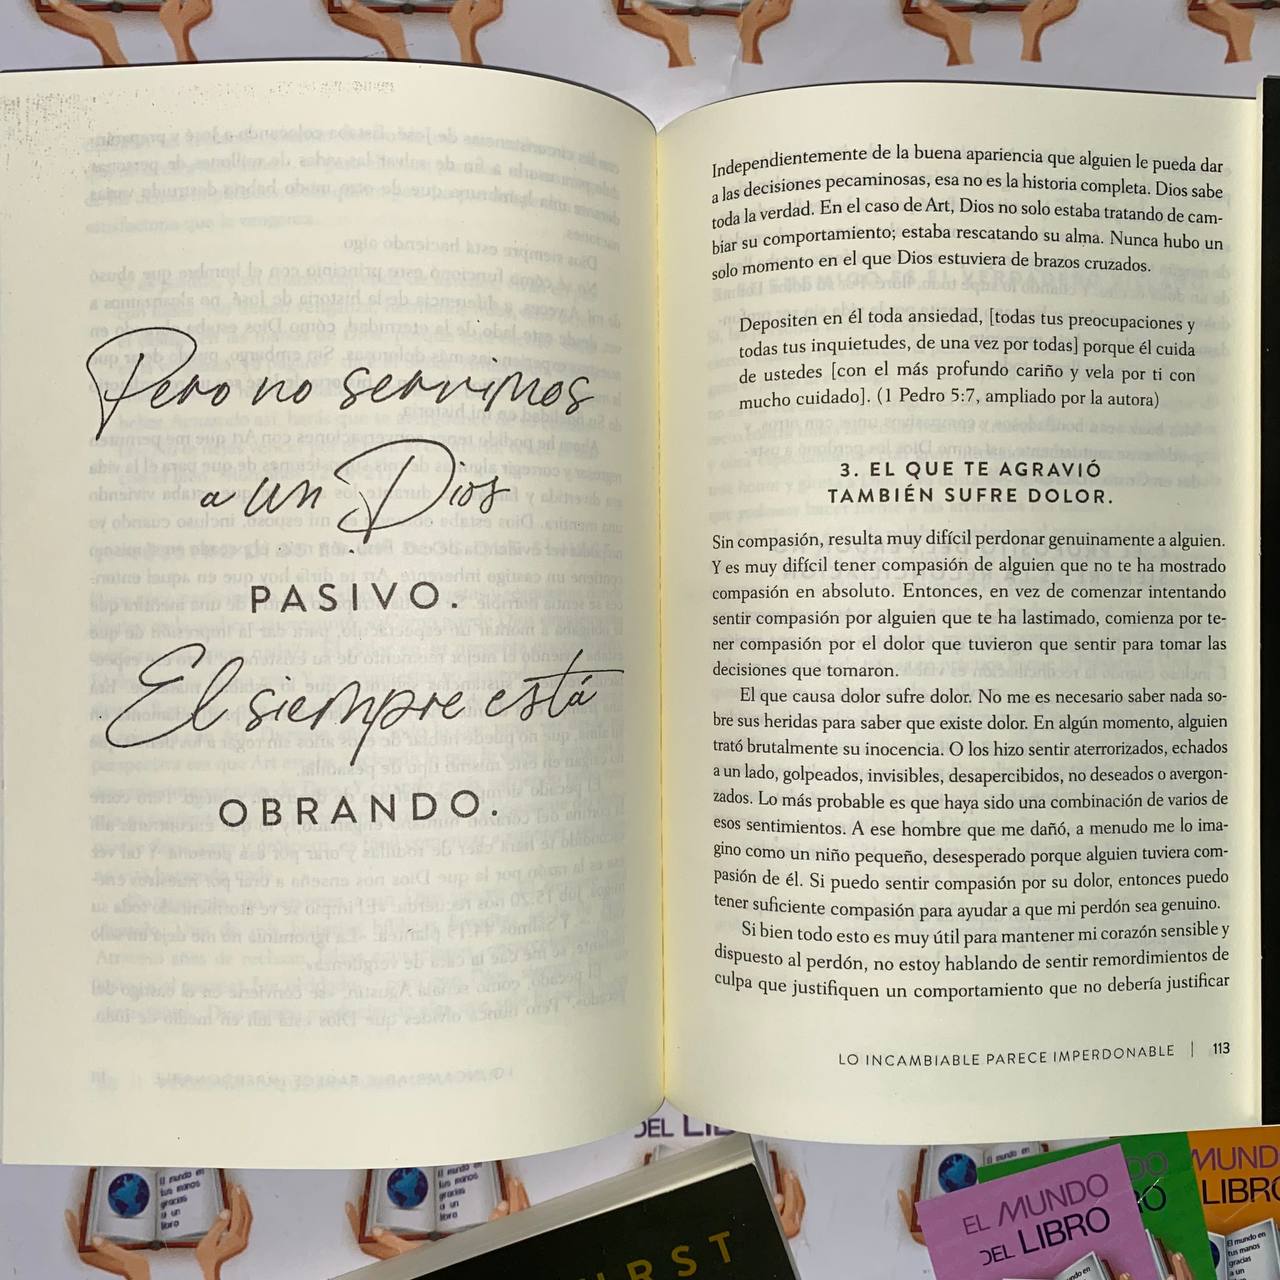 Pero no servimos
a un Dios
PASIVO.
El siempre está
OBRANDO.
Independientemente de la buena apariencia que alguien le pueda dar
a las decisiones pecaminosas, esa no es la historia completa. Dios sabe
toda la verdad. En el caso de Art, Dios no solo estaba tratando de cam-
biar su comportamiento; estaba rescatando su alma. Nunca hubo un
solo momento en el que Dios estuviera de brazos cruzados.
Depositen en él toda ansiedad, [todas tus preocupaciones y
todas tus inquietudes, de una vez por todas] porque él cuida
de ustedes [con el más profundo cariño y vela por ti con
mucho cuidado]. (1 Pedro 5:7, ampliado por la autora)
3. EL QUE TE AGRAVIÓ
TAMBIÉN SUFRE DOLOR.
Sin compasión, resulta muy difícil perdonar genuinamente a alguien.
Y es muy difícil tener compasión de alguien que no te ha mostrado
compasión en absoluto. Entonces, en vez de comenzar intentando
sentir compasión por alguien que te ha lastimado, comienza por te-
ner compasión por el dolor que tuvieron que sentir para tomar las
decisiones que tomaron.
El que causa dolor sufre dolor. No me es necesario saber nada so-
bre sus heridas para saber que existe dolor. En algún momento, alguien
trató brutalmente su inocencia. O los hizo sentir aterrorizados, echados
a un lado, golpeados, invisibles, desapercibidos, no deseados o avergon-
zados. Lo más probable es que haya sido una combinación de varios de
esos sentimientos. A ese hombre que me dañó, a menudo me lo ima-
gino como un niño pequeño, desesperado porque alguien tuviera com-
pasión de él. Si puedo sentir compasión por su dolor, entonces puedo
tener suficiente compasión para ayudar a que mi perdón sea genuino.
Si bien todo esto es muy útil para mantener mi corazón sensible y
dispuesto al perdón, no estoy hablando de sentir remordimientos de
culpa que justifiquen un comportamiento que no debería justificar
LO INCAMBIABLE PARECE IMPERDONABLE | 113
DEL LIB
El mundo en
tus manos
gracias
a un
libro
El mundo en
tus manos
gracias
a un
libro
EL MUNDO
DEL LIBRO
MUND
LIBRO
El mundo en
tus manos
gracias
a un